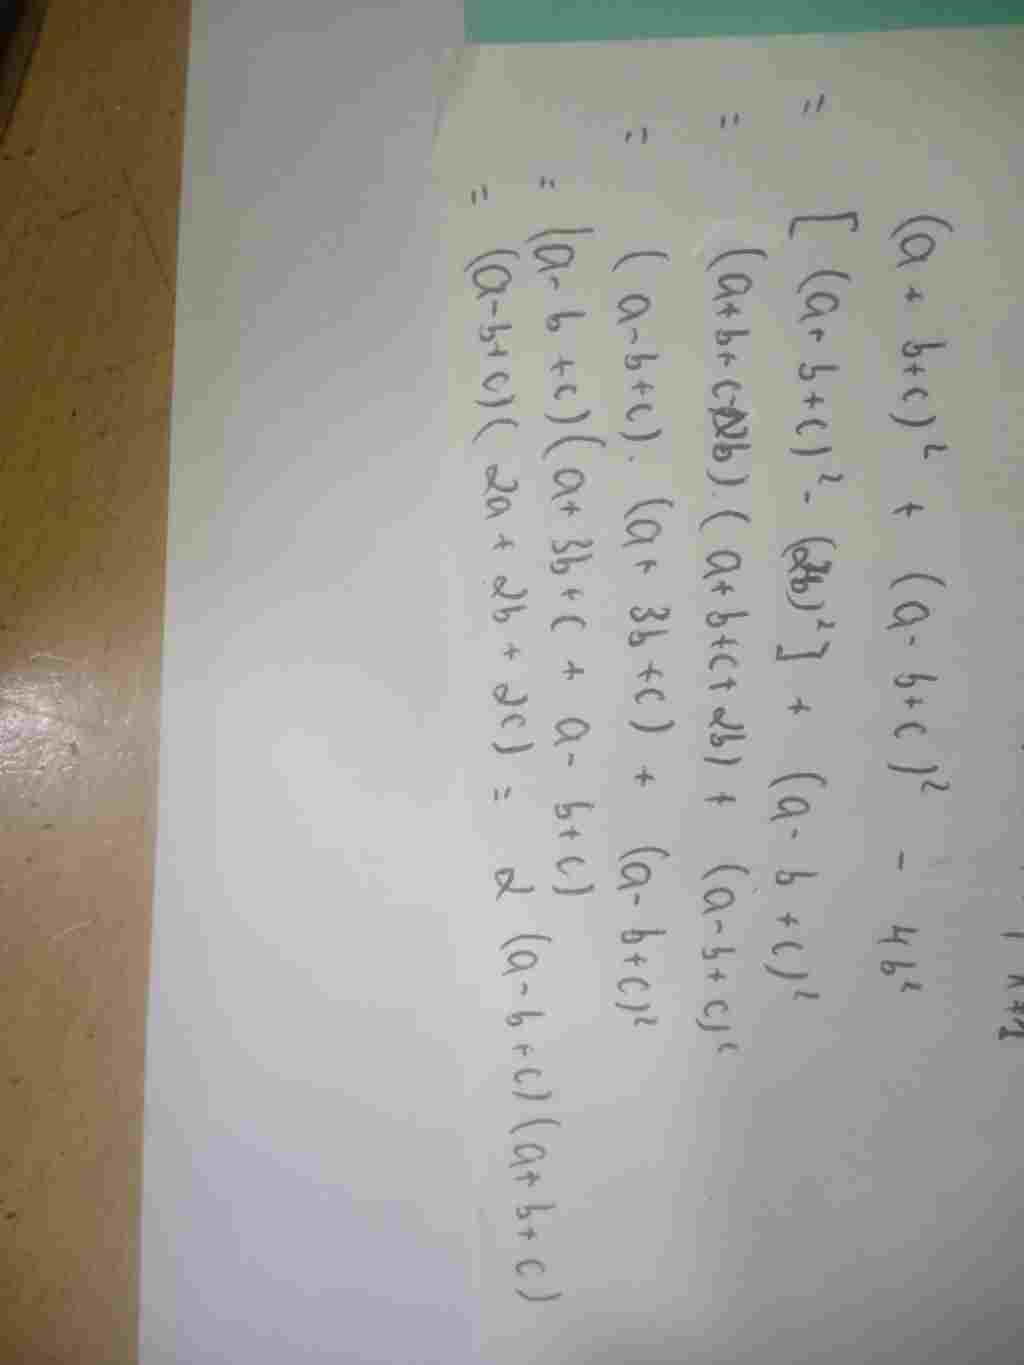 (a + b+c)² + (a - b+c)² - 4b²
= [(a+ b+c)² - (2b)²] + (a- b +c)²
= (a+b+c-2b).(a+b+c+2b) + (a-b+c)²
= (a-b+c). (a+ 3b+c) + (a- b+c)²
= (a- b +c)(a+ 3b+c + a- b+c)
= (a-b+c)( 2a + 2b + 2c) = 2 (a-b+c)(a+b+c)